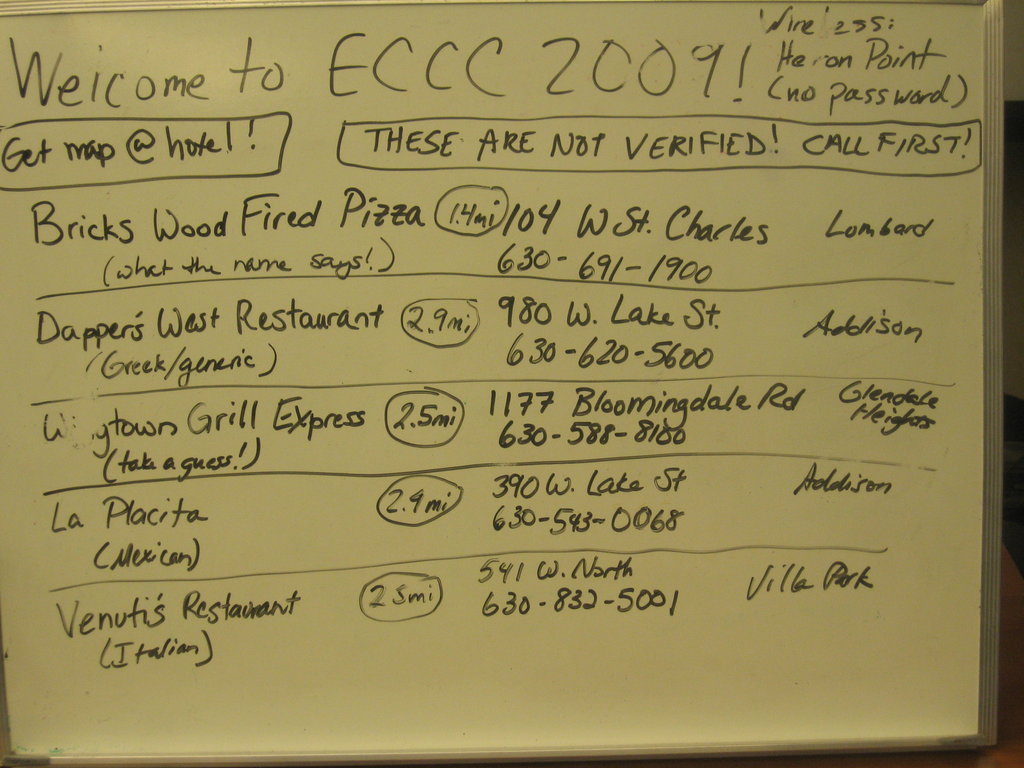 Welcome to ECCC 2009!
Wireless:
Heron Point
(no password)
Get map @ hotel!
THESE ARE NOT VERIFIED! CALL FIRST!
Bricks Wood Fired Pizza 1.4mi 104 W St. Charles Lombard
(what the name says!) 630-691-1900
Dapper's West Restaurant 2.9mi 980 W. Lake St. Addison
(Greek/generic) 630-620-5600
Grill Express 2.5mi 1177 Bloomingdale Rd Glendale Heights
(take a guess!) 630-588-8180
La Placita 2.9mi 390 W. Lake St Addison
(Mexican) 630-543-0068
Venuti's Restaurant 2.5mi 541 W. North Villa Park
(Italian) 630-832-5001